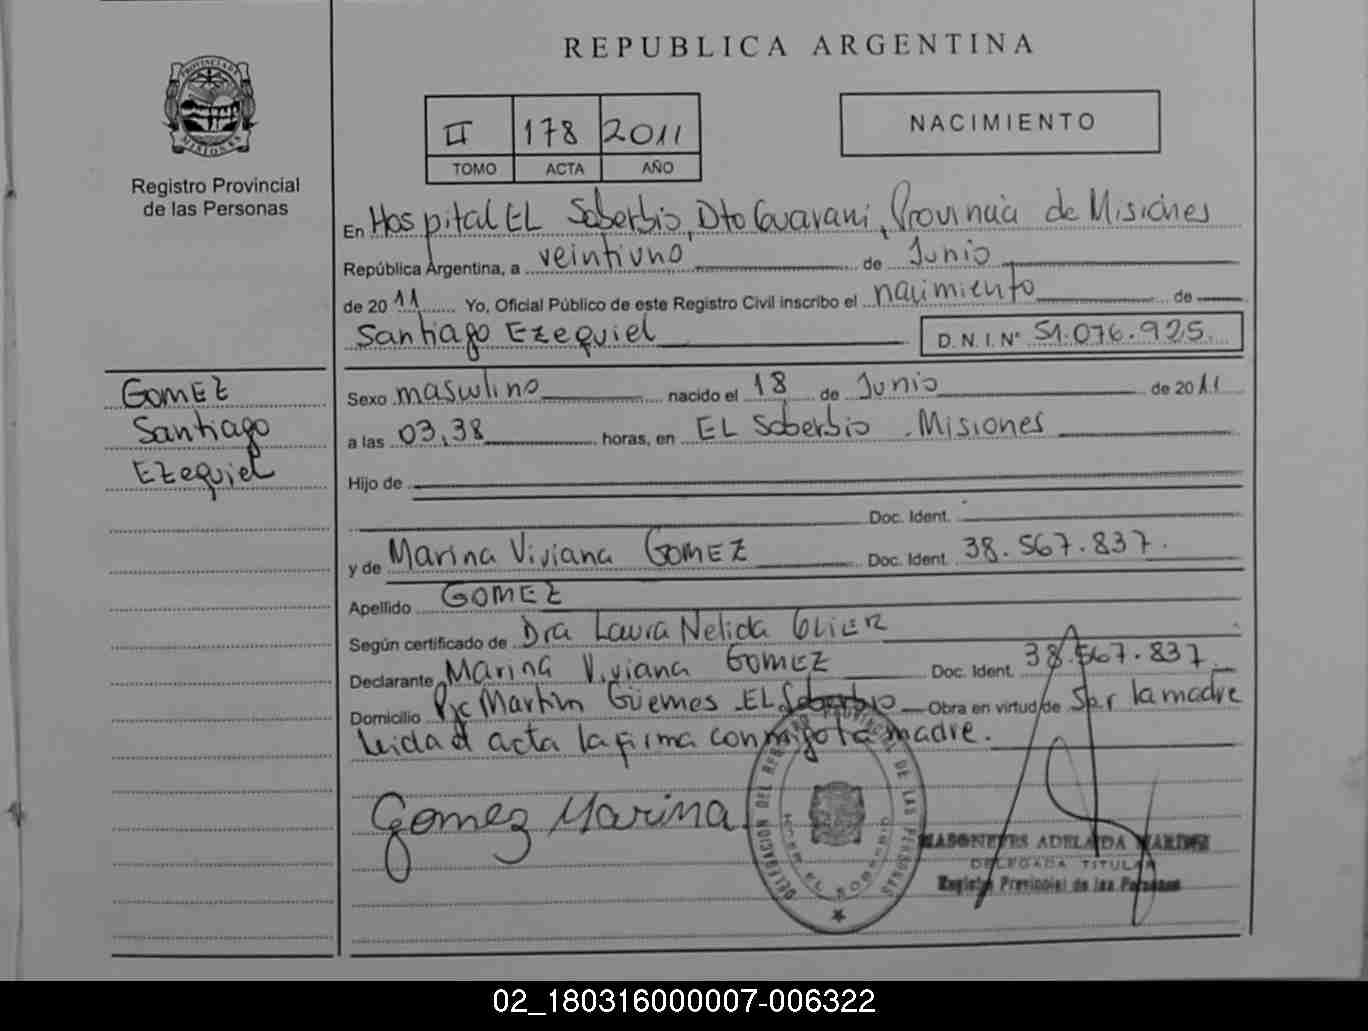 REPUBLICA ARGENTINA
PROVINCIA DE MISIONES
Registro Provincial
de las Personas
II 178 2011
TOMO ACTA AÑO
NACIMIENTO
En Hospital EL Soberbio, Dto Guarani, Provincia de Misiones
República Argentina, a veintiuno de Junio
de 2011 Yo, Oficial Público de este Registro Civil inscribo el nacimiento de
Santiago Ezequiel D.N.I. N° 51.076.925.
GOMEZ
Santiago
Ezequiel
Sexo masculino nacido el 18 de Junio de 2011
a las 03,38 horas, en EL Soberbio - Misiones
Hijo de
Doc. Ident.
y de Marina Viviana GOMEZ Doc. Ident. 38.567.837.
Apellido GOMEZ
Según certificado de Dra Laura Nelida
Declarante Marina Viviana GOMEZ Doc. Ident. 38.567.837
Domicilio Martin Güemes EL Soberbio Obra en virtud de Ser la madre
leida el acta la firma conmigo la madre.
Gomez Marina
DELEGACION DEL REGISTRO PROVINCIAL DE LAS PERSONAS
EL SOBERBIO
ADELAIDA
DELEGADA TITULAR
Registro Provincial de las Personas
02_180316000007-006322